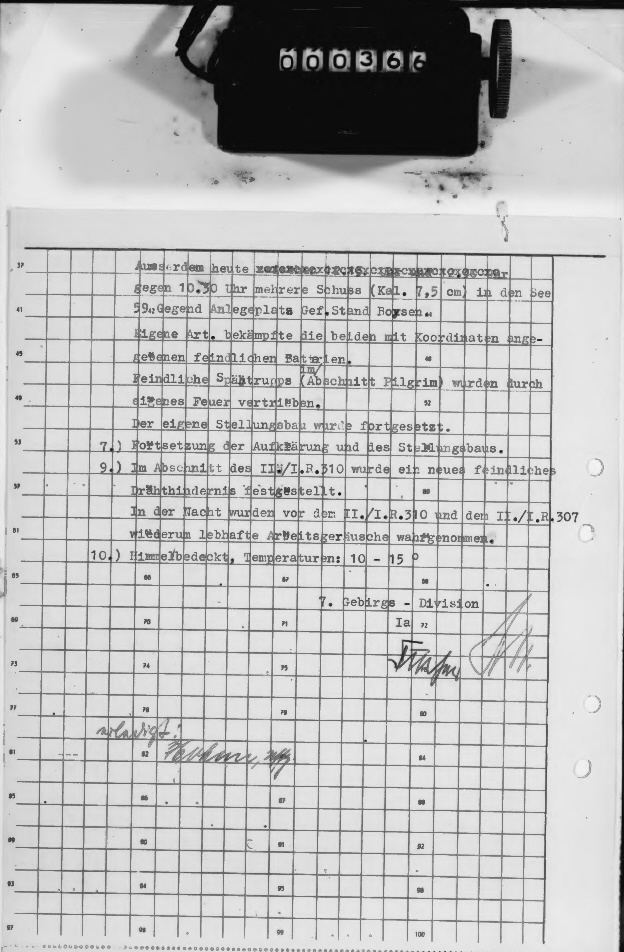 000366
37 Ausserdem heute
gegen 10.30 Uhr mehrere Schuss (Kal. 7,5 cm) in den See
41 59 42 Gegend Anlegeplatz Gef.Stand Boysen. 44
Eigene Art. bekämpfte die beiden mit Koordinaten ange-
45 gebenen feindlichen Batterien. 48
im/
Feindliche Spähtrupps (Abschnitt Pilgrim) wurden durch
49 eigenes Feuer vertrieben. 52
Der eigene Stellungsbau wurde fortgesetzt.
53 7.) Fortsetzung der Aufklärung und des Stellungsbaus.
9.) Im Abschnitt des II./I.R.310 wurde ein neues feindliches
57 Drahthindernis festgestellt. 60
In der Nacht wurden vor dem II./I.R.310 und dem II./I.R.307
61 wiederum lebhafte Arbeitsgeräusche wahrgenommen.
10.) Himmel bedeckt, Temperaturen: 10 - 15 °
65 66 67 68
7. Gebirgs - Division
69 70 71 Ia 72
73 74 75
77 78 79 80
erledigt:
81 82 84
85 86 87 88
89 90 91 92
93 94 95 96
97 98 99 100